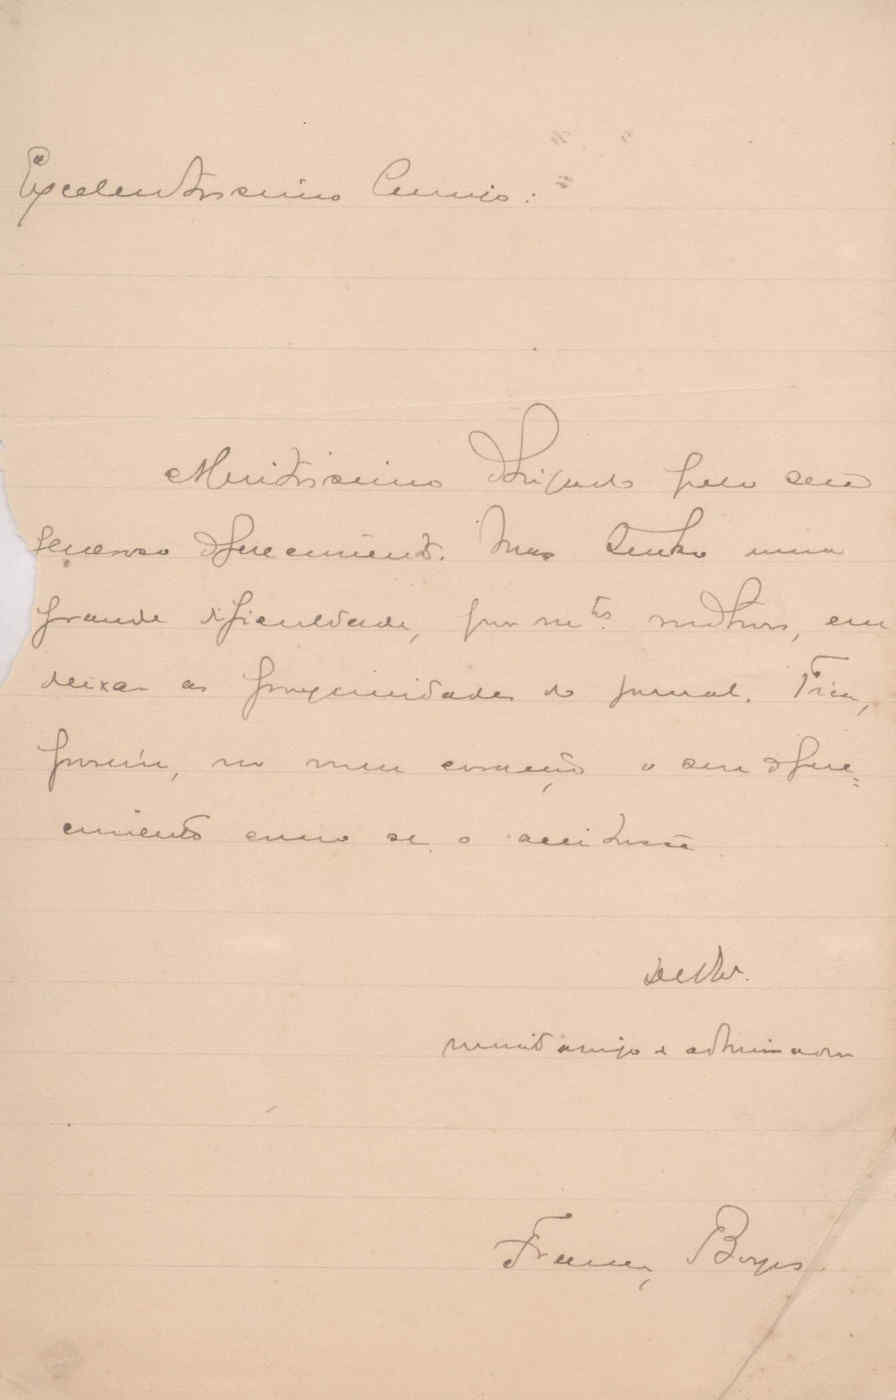 Excelentissimo Amigo:
Muitissimo obrigado pelo seu
generoso oferecimento. Mas tenho uma
grande dificuldade, por m.tos motivos, em
deixar as proximidades do jornal. Fica,
porém, no meu coração o seu ofere=
cimento como se o aceitasse
De V.
muito amigo e admirador
França Borges